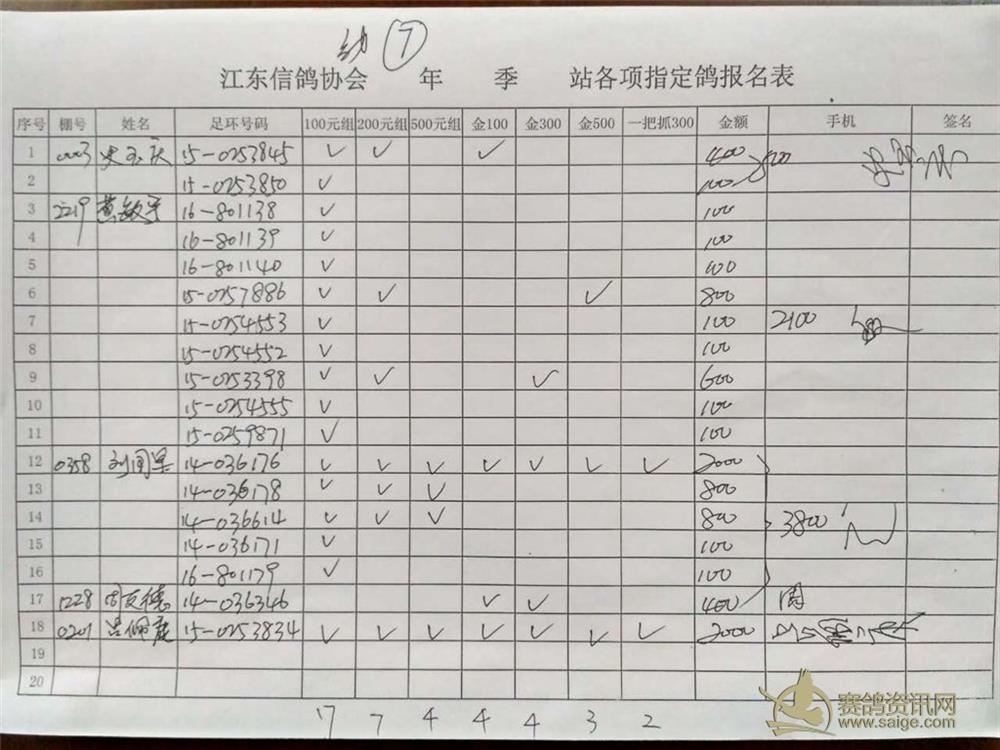 幼 7
江东信鸽协会 年 季 站各项指定鸽报名表
序号 棚号 姓名 足环号码 100元组 200元组 500元组 金100 金300 金500 一把抓300 金额 手机 签名
1 0003 15-0253845 √ √ √ 400 500
2 15-0253850 √ 100
3 2219 黄敏宇 16-801138 √ 100
4 16-801139 √ 100
5 16-801140 √ 100
6 15-0257886 √ √ √ 800
7 15-0254553 √ 100 2100
8 15-0254552 √ 100
9 15-0253398 √ √ √ 600
10 15-0254555 √ 100
11 15-0259871 √ 100
12 0358 14-036176 √ √ √ √ √ √ √ 2000
13 14-036178 √ √ √ 800
14 14-036614 √ √ √ 800 3800
15 14-036171 √ 100
16 16-801179 √ 100
17 1228 周友德 14-036346 √ √ 400 周
18 0201 吕佩庭 15-0253834 √ √ √ √ √ √ √ 2000
19
20
17 7 4 4 4 3 2
赛鸽资讯网
www.saige.com